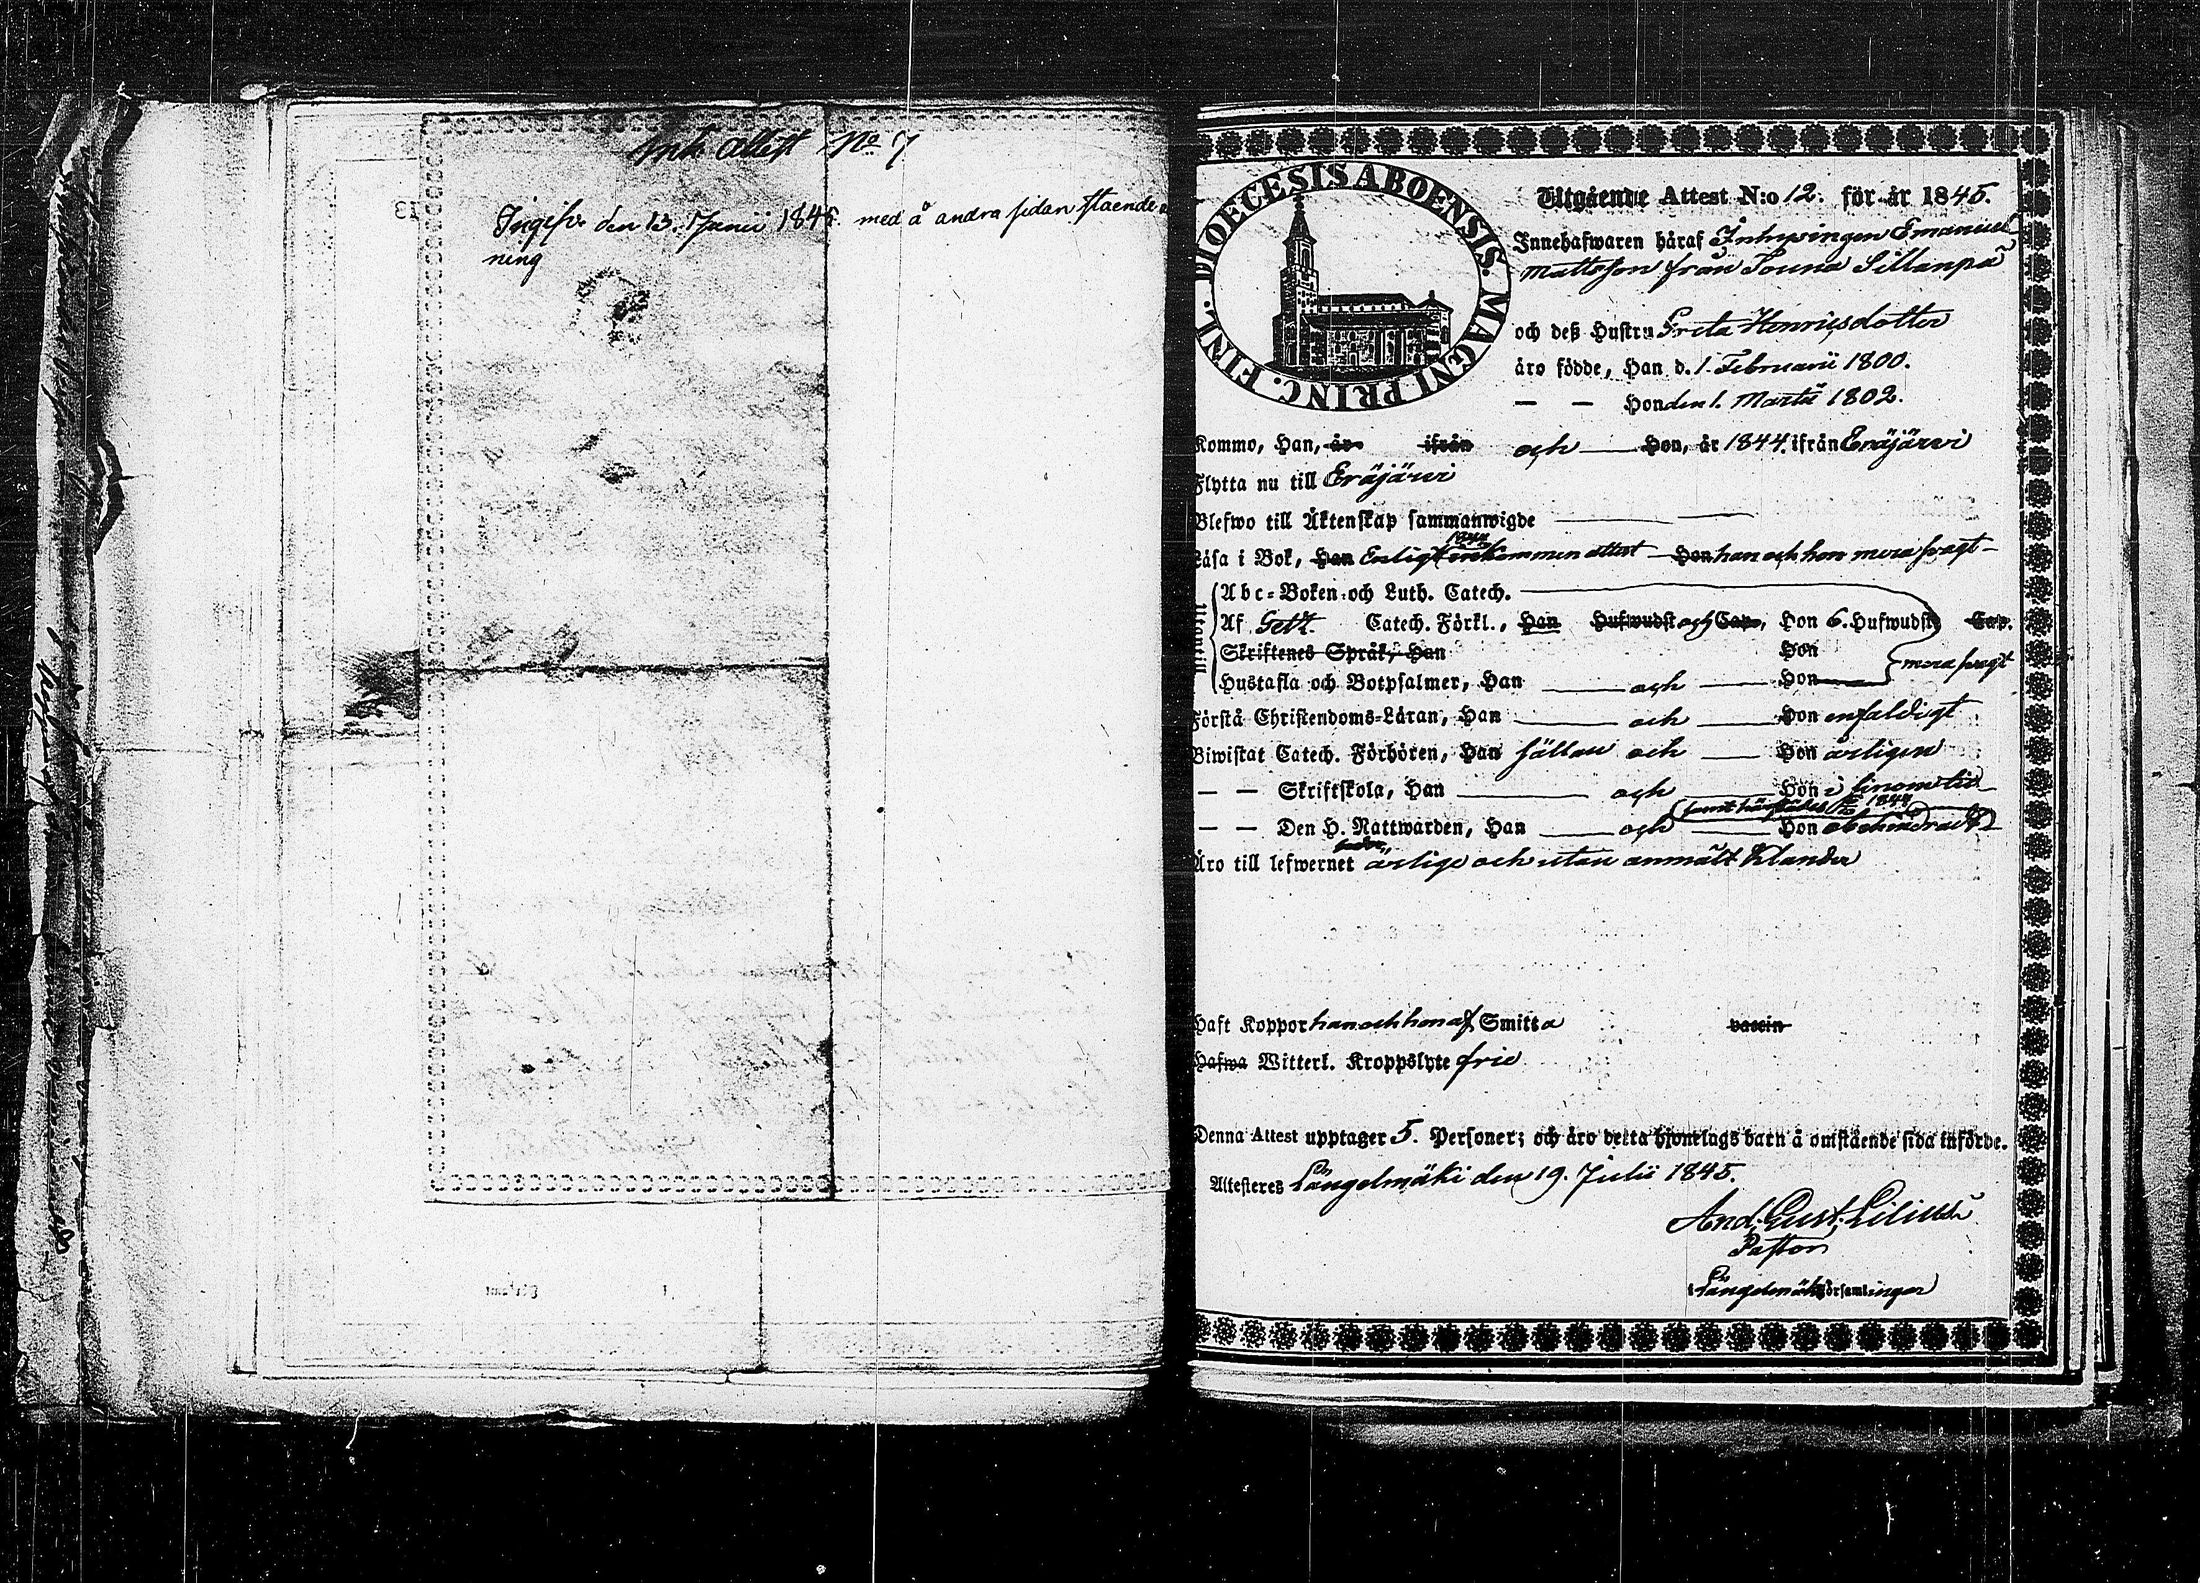 Ink Attest No 7
Ingifv. den 13. Junii 1845. med å andra sidan stående
ning
DIOECESIS ABOENSIS. MAGNI PRINC. FINL.
Utgående Attest N:o 12. för år 1845.
Innehafwaren häraf Inhysingen Emanuel
Mattsson från Jouna Sillanpä
och deß Hustru Greta Henricsdotter
äro födde, Han d. 1. Februarii 1800.
— — Hon den 1. Martii 1802.
Kommo, Han, år ifrån och — Hon, år 1844. ifrån Eräjärvi
Flytta nu till Eräjärvi
Blefwo till Äktenskap sammanwigde —
1844
Läsa i Bok, Han Enligt inkommen attest — Hon han och hon mera svagt –
Utantill
Abc-Boken och Luth. Catech. —
Af Catech. Förkl., Han Hufwudst och Cap., Hon 6. Hufwudst Cap.
Skriftenes Språk, Han Hon
mera svagt
Hustafla och Botpsalmer, Han — och — Hon —
Förstå Christendoms-Läran, Han — och — Hon enfaldigt
Biwistat Catech. Förhören, Han sällan och — Hon årligen
— — Skriftskola, Han — och — Hon i sinom tid
— — Den H. Nattwarden, Han — och — Hon
Äro till lefwernet ärlige och utan anmält klander
Haft Koppor han och hon af Smitta vaccin
Hafwa Witterl. Kroppslyte frie
Denna Attest upptager 5. Personer; och äro detta hjonelags barn å omstående sida införde.
Attesteres Längelmäki den 19. Julii 1845.
And. Gust. Lilius
Pastor
i Längelmäki församlingar